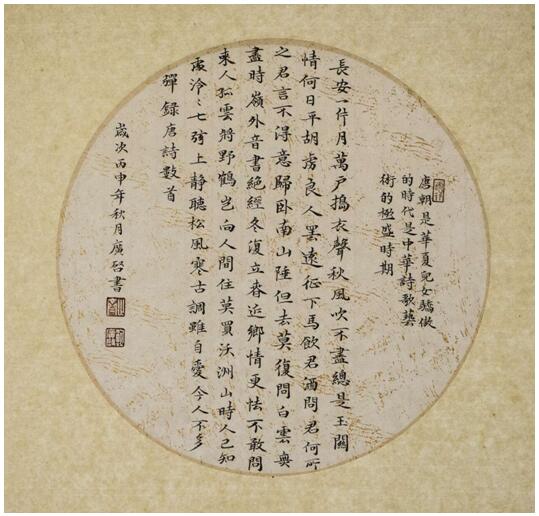 唐朝是華夏兒女驕傲
的時代是中華詩歌藝
術的極盛時期
長安一片月萬戶搗衣聲秋風吹不盡總是玉關
情何日平胡虜良人罷遠征下馬飲君酒問君何所
之君言不得意歸卧南山陲但去莫復問白雲無
盡時嶺外音書絕經冬復立春近鄉情更怯不敢問
來人孤雲將野鶴豈向人間住莫買沃洲山時人已知
處泠〻七弦上靜聽松風寒古調雖自愛今人不多
彈 錄唐詩數首
歲次丙申年秋月廣啓書